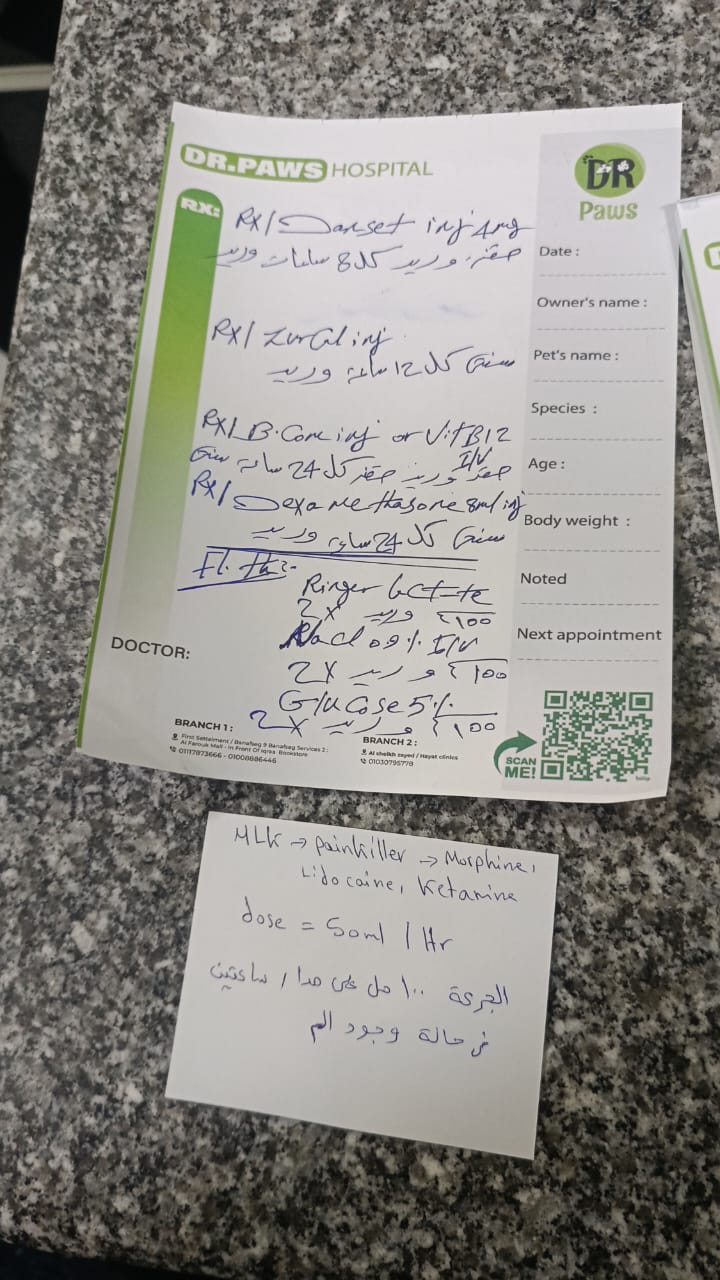 DR.PAWS HOSPITAL
DR
Paws
RX:
RX/ Danset inj 4mg
حقنة وريد كل 8 ساعات وريد
RX/ Zurcal inj
كل 12 ساعة وريد
RX/ B.Com inj or Vit B12
I/V
حقنة وريد حقن كل 24 ساعة
RX/ Dexamethasone 8ml inj
كل 24 ساعة وريد
Ringer
2X وريد ١٠٠
Nacl 09% I/V
2X وريد ١٠٠
Glucose 5%
2X وريد ١٠٠
Date :
Owner's name :
Pet's name :
Species :
Age :
Body weight :
Noted
Next appointment
DOCTOR:
BRANCH 1 :
First Settelment / Banafseg 9 Banafseg Services 2 :
Al Farouk Mall - In Front Of Iqraa Bookstore
01117873666 - 01008886446
BRANCH 2 :
Al sheikh zayed / Hayat clinics
01030795778
SCAN
ME!
MLK → painkiller → Morphine,
Lidocaine, Ketamine
dose = 50ml / Hr
الجرعة ١٠٠ مل على مدار ساعتين
في حالة وجود الم